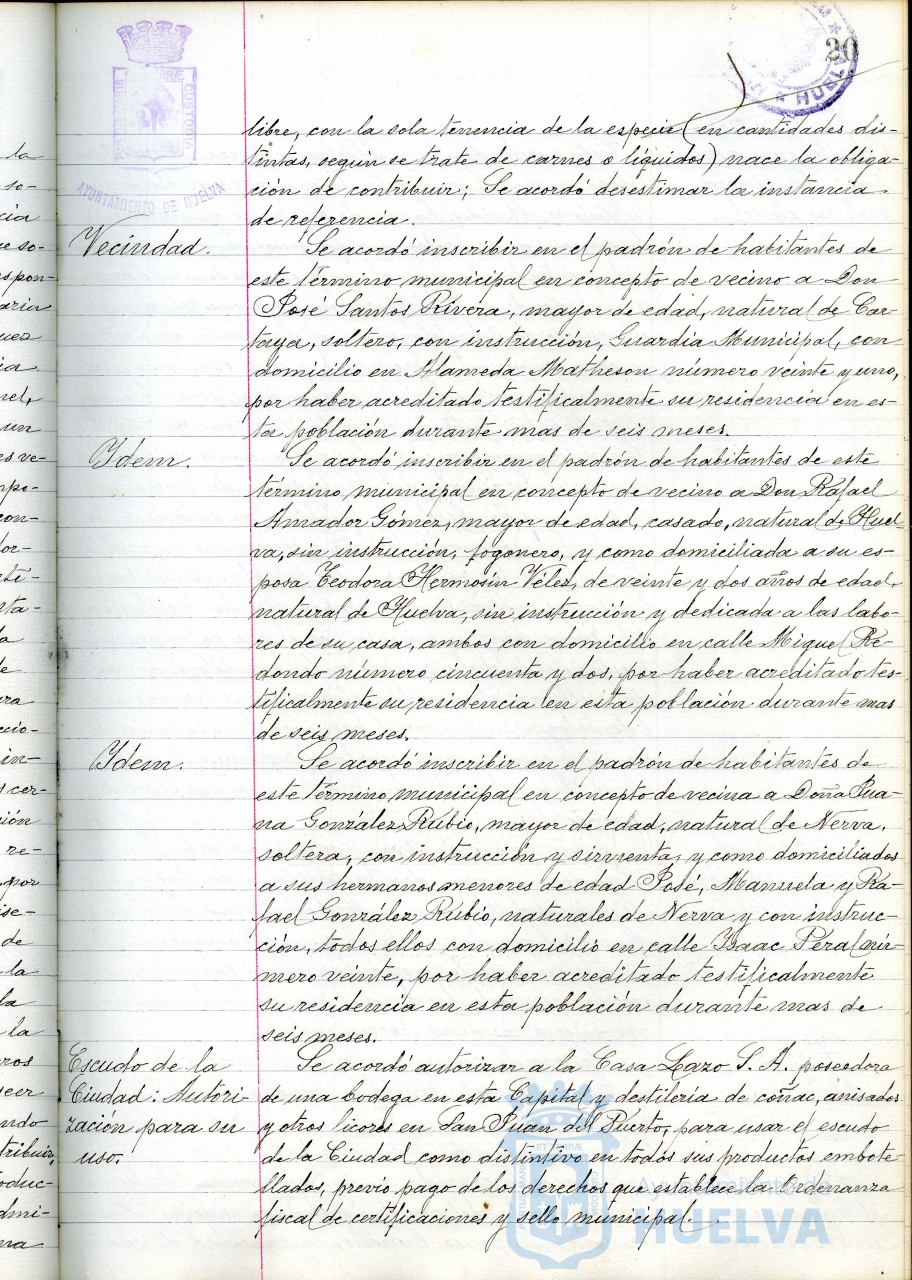 20
AYUNTAMIENTO DE HUELVA
libre, con la sola tenencia de la especie (en cantidades dis-
tintas, según se trate de carnes o líquidos) nace la obliga-
ción de contribuir; Se acordó desestimar la instancia
de referencia.
Vecindad.
Se acordó inscribir en el padrón de habitantes de
este término municipal en concepto de vecino a Don
José Santos Rivera, mayor de edad, natural de Car-
taya, soltero, con instrucción, Guardia Municipal, con
domicilio en Alameda Matheson número veinte y uno,
por haber acreditado testificalmente su residencia en es-
ta población durante mas de seis meses.
Ydem.
Se acordó inscribir en el padrón de habitantes de este
término municipal en concepto de vecino a Don Rafael
Amador Gómez, mayor de edad, casado, natural de Huel-
va, sin instrucción, fogonero, y como domiciliada a su es-
posa Teodora Hermosin Vélez, de veinte y dos años de edad,
natural de Huelva, sin instrucción y dedicada a las labo-
res de su casa, ambos con domicilio en calle Miguel Re-
dondo número cincuenta y dos, por haber acreditado tes-
tificalmente su residencia en esta población durante mas
de seis meses.
Ydem.
Se acordó inscribir en el padrón de habitantes de
este término municipal en concepto de vecina a Doña Jua-
na González Rubio, mayor de edad, natural de Nerva,
soltera, con instrucción y sirvienta, y como domiciliados
a sus hermanos menores de edad José, Manuela y Ra-
fael González Rubio, naturales de Nerva y con instruc-
ción, todos ellos con domicilio en calle Isaac Peral nú-
mero veinte, por haber acreditado testificalmente
su residencia en esta población durante mas de
seis meses.
Escudo de la
Ciudad: Autori-
zación para su
uso.
Se acordó autorizar a la Casa Lazo S. A. poseedora
de una bodega en esta Capital y destilería de coñac, anisados
y otros licores en San Juan del Puerto, para usar el escudo
de la Ciudad como distintivo en todos sus productos embote-
llados, previo pago de los derechos que establece la Ordenanza
fiscal de certificaciones y sello municipal.
Ayuntamiento de
HUELVA